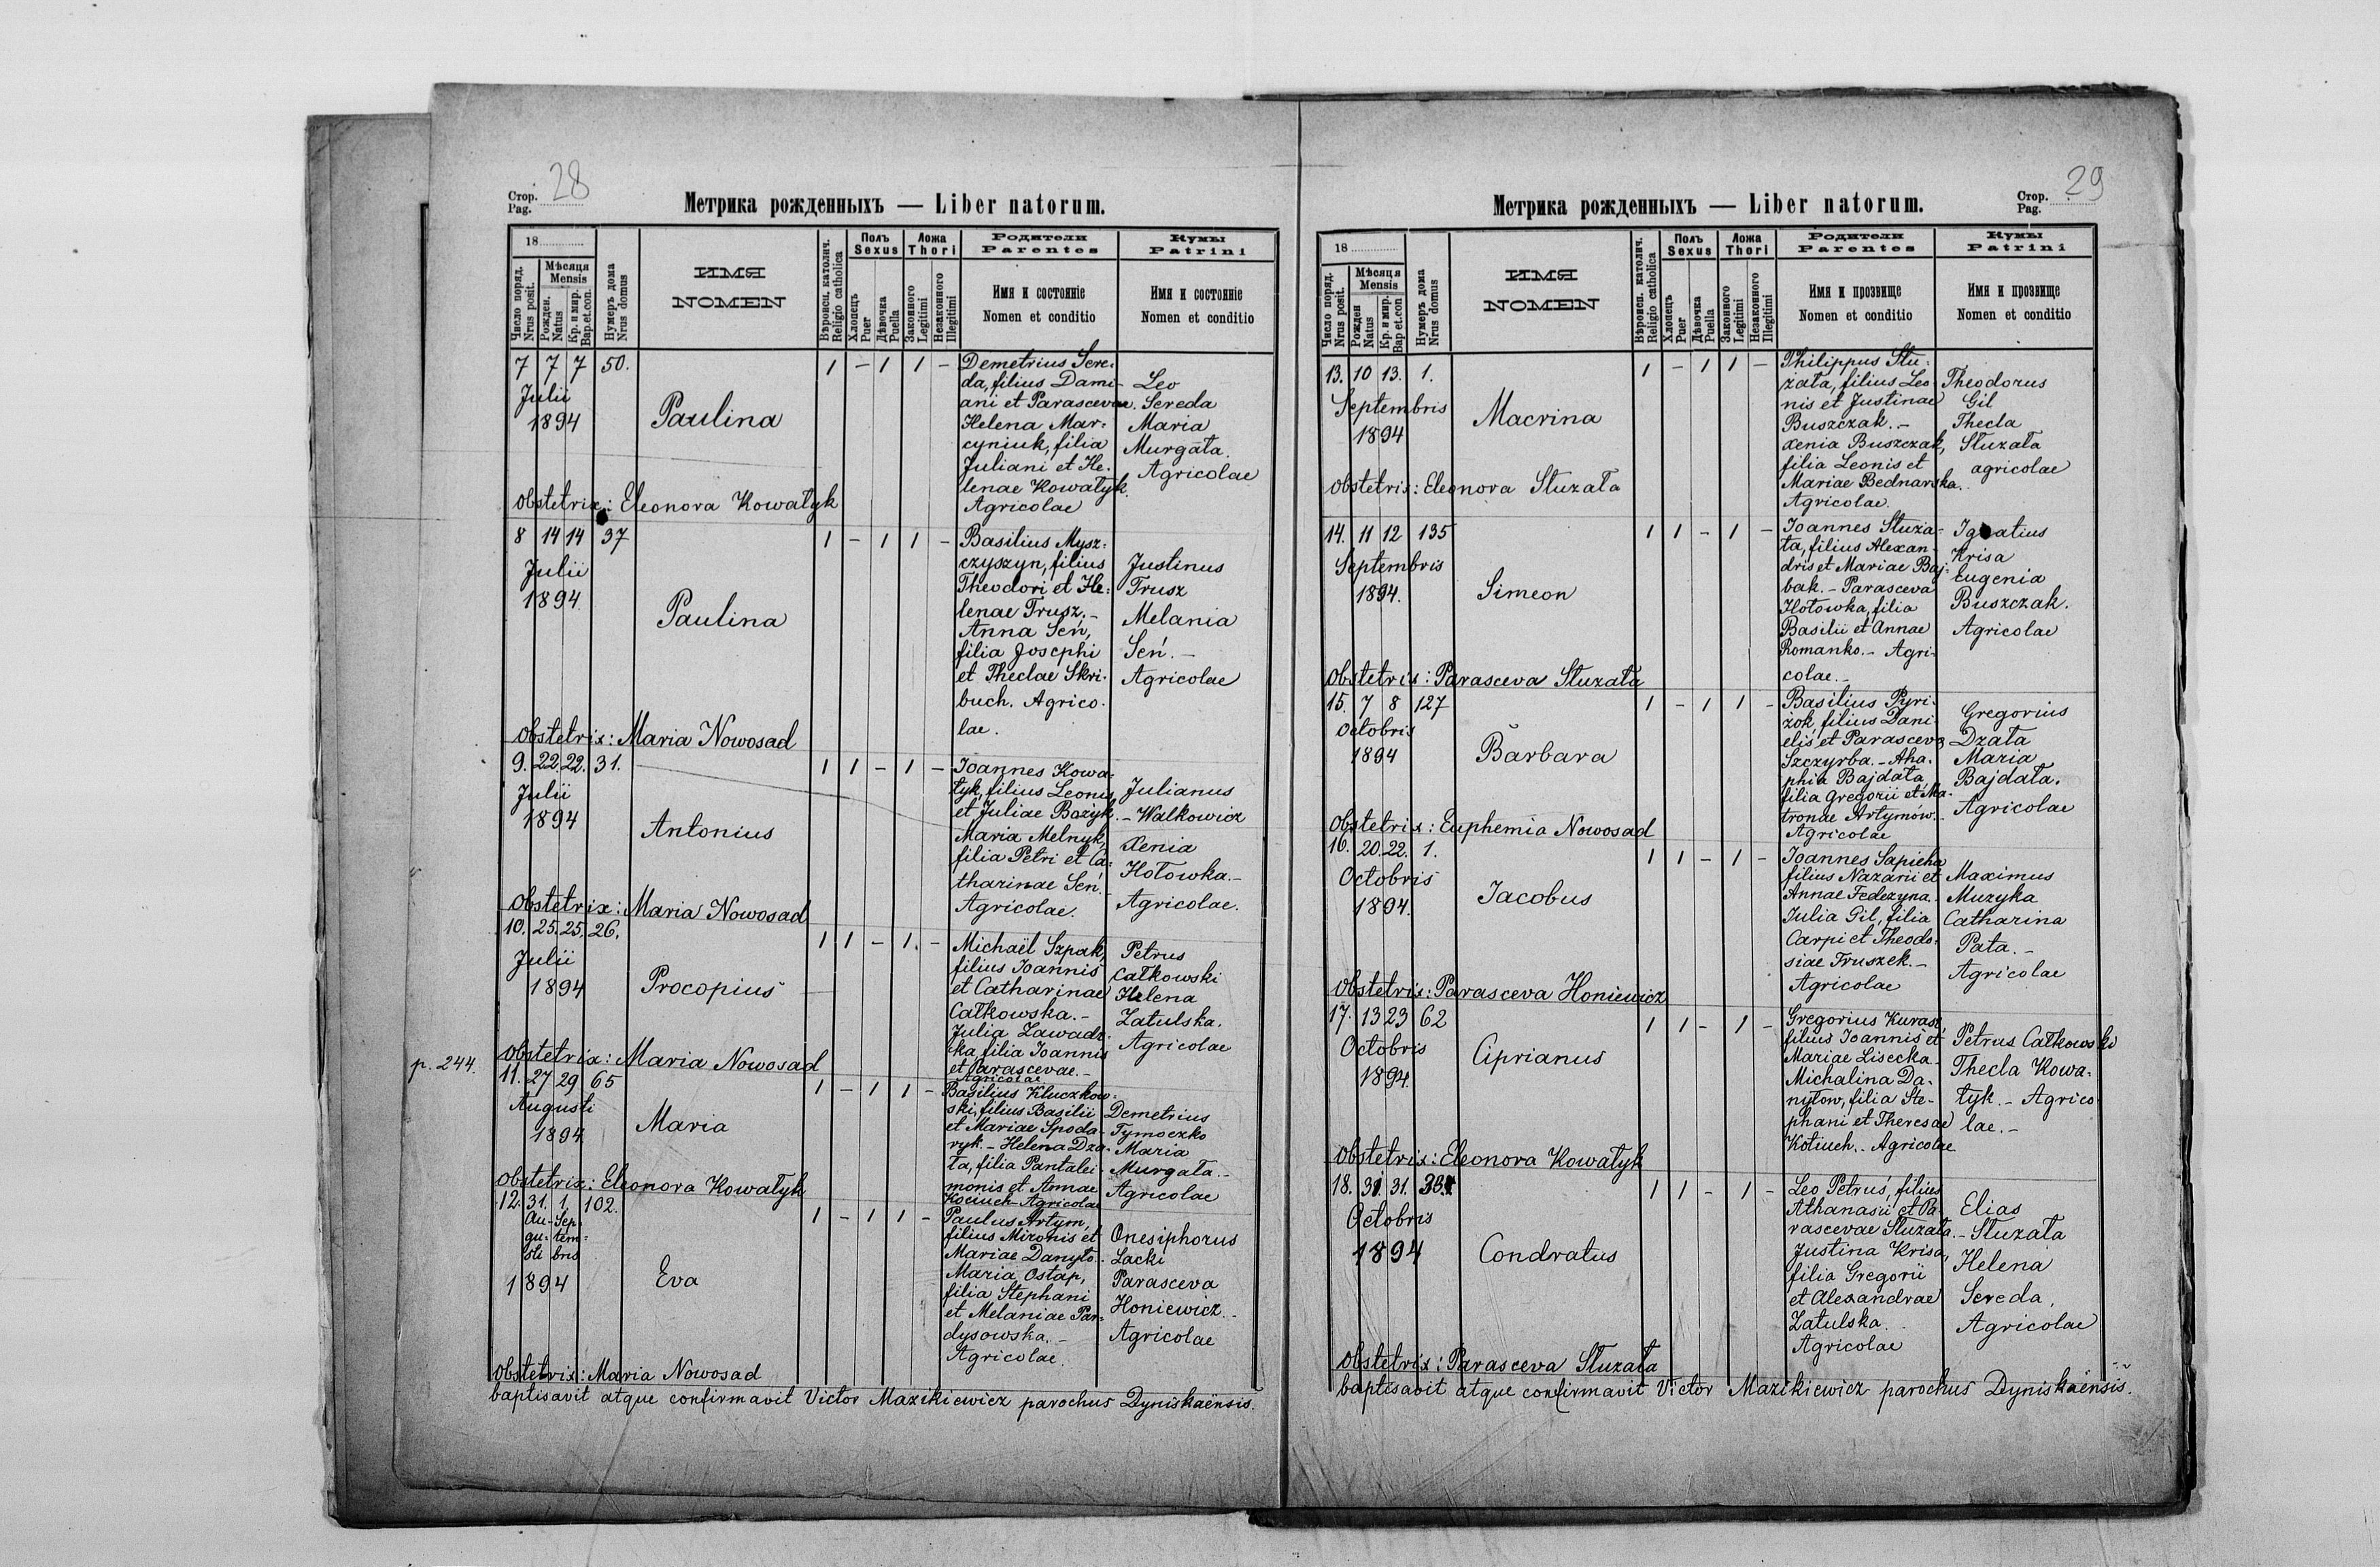 Стор.
Pag. 28
Метрика рожденныхъ — Liber natorum.
18
Число поряд.
Nrus posit.
Мѣсяця
Mensis
Рожден.
Natus
Кр. и мир.
Bap.et.con.
Нумеръ дома
Nrus domus
ИМЯ
NOMEN
Вѣроисп. католич.
Religio catholica
Полъ
Sexus
Хлопецъ
Puer
Дѣвочка
Puella
Ложа
Thori
Законного
Legitimi
Незаконного
Illegitimi
Родители
Parentes
Имя и состояніе
Nomen et conditio
Кумы
Patrini
Имя и состояніе
Nomen et conditio
7 7 7 50.
Julii
1894
Paulina
1 – 1 1 –
Demetrius Sere-
da, filius Dami-
ani et Parascevae.
Helena Mar-
cyniuk, filia
Juliani et He-
lenae Kowałyk.
Agricolae
Leo
Sereda
Maria
Murgała.
Agricolae
obstetrix: Eleonora Kowałyk
8 14 14 37
Julii
1894.
Paulina
1 – 1 1 –
Basilius Mysz-
czyszyn, filius
Theodori et He-
lenae Trusz, –
Anna Seń,
filia Josephi
et Theclae Skri-
buch. Agrico-
lae.
Justinus
Trusz
Melania
Seń. –
Agricolae
obstetrix: Maria Nowosad
9. 22. 22. 31.
Julii
1894
Antonius
1 1 – 1 –
Joannes Kowa-
łyk, filius Leonis
et Juliae Bazyk. –
Maria Melnyk,
filia Petri et Ca-
tharinae Seń. –
Agricolae.
Julianus
Walkowicz
Xenia
Hołowka. –
Agricolae.
obstetrix: Maria Nowosad
10. 25. 25. 26.
Julii
1894
Procopius
1 1 – 1. –
Michaël Szpak,
filius Joannis
et Catharinae
Całkowska. –
Julia Zawadz-
ka, filia Joannis
et Parascevae. –
Agricolae
Petrus
Całkowski
Helena
Zatulska.
Agricolae
obstetrix: Maria Nowosad
p. 244.
11. 27 29 65
Augusti
1894
Maria
1 – 1 1 –
Basilius Kluczkow-
ski, filius Basilii
et Mariae Spoda-
ryk. – Helena Dza-
ła, filia Pantalei-
monis et Annae
Kociuch Agricolae
Demetrius
Tymoczko
Maria
Murgała. –
Agricolae
obstetrix: Eleonora Kowałyk
12. 31. 1. 102.
Au- Sep-
gu- tem-
sti bris
1894
Eva
1 – 1 1 –
Paulus Artym,
filius Mironis et
Mariae Danyło. –
Maria Ostap,
filia Stephani
et Melaniae Par-
dysowska. –
Agricolae.
Onesiphorus
Lacki
Parasceva
Honiewicz. –
Agricolae
obstetrix: Maria Nowosad
baptisavit atque confirmavit Victor Mazikiewicz parochus Dyniskaënsis.
Стор.
Pag. 29
Метрика рожденныхъ — Liber natorum.
18
Число поряд.
Nrus posit.
Мѣсяця
Mensis
Рожден
Natus
Кр. и мир.
Bap et.con
Нумеръ дома
Nrus domus
ИМЯ
NOMEN
Вѣроисп. католич.
Religio catholica
Полъ
Sexus
Хлопецъ
Puer
Дѣвочка
Puella
Ложа
Thori
Законного
Legitimi
Незаконного
Illegitimi
Родители
Parentes
Имя и прозвище
Nomen et conditio
Кумы
Patrini
Имя и прозвище
Nomen et conditio
13. 10 13. 1.
Septembris
1894
Macrina
1 – 1 1 –
Philippus Słu-
zała, filius Leo
nis et Justinae
Buszczak. –
Xenia Buszczak,
filia Leonis et
Mariae Bednarska.
Agricolae.
Theodorus
Gil
Thecla
Słuzała
agricolae
obstetrix: Eleonora Słuzała
14. 11 12 135
Septembris
1894.
Simeon
1 1 – 1 –
Joannes Słuza-
ła, filius Alexan-
dris et Mariae Baj-
bak. – Parasceva
Hołowka, filia
Basilii et Annae
Romanko. – Agri-
colae. –
Ignatius
Krisa
Eugenia
Buszczak.
Agricolae
obstetrix: Parasceva Słuzała
15. 7 8 127
Octobris
1894
Barbara
1 – 1 1 –
Basilius Pyri-
żok, filius Dani-
elis et Parasceva
Szczyrba. – Aha-
phia Bajdała,
filia Gregorii et Ma-
tronae Artymów. –
Agricolae
Gregorius
Dzała
Maria
Bajdała.
Agricolae
obstetrix: Euphemia Nowosad
16. 20. 22. 1.
Octobris
1894.
Jacobus
1 1 – 1 –
Joannes Sapieha
filius Nazarii et
Annae Fedezyna.
Julia Gil, filia
Carpi et Theodo-
siae Truszek. –
Agricolae
Maximus
Muzyka
Catharina
Pała. –
Agricolae
obstetrix: Parasceva Honiewicz
17. 13 23 62
Octobris
1894.
Ciprianus
1 1 – 1 –
Gregorius Kurasz,
filius Joannis et
Mariae Lisecka
Michalina Da-
nyłow, filia Ste-
phani et Theresae
Kotiuch. Agricolae
Petrus Całkowski
Thecla Kowa-
łyk. – Agrico-
lae. –
obstetrix: Eleonora Kowałyk
18. 31. 31.
Octobris
1894
Condratus
1 1 – 1 –
Leo Petrus, filius
Athanasii et Pa-
rascevae Słuzała. –
Justina Krisa,
filia Gregorii
et Alexandrae
Zatulska.
Agricolae
Elias
Słuzała
Helena
Sereda,
Agricolae
obstetrix: Parasceva Słuzała
baptisavit atque confirmavit Victor Mazikiewicz parochus Dyniskaënsis.